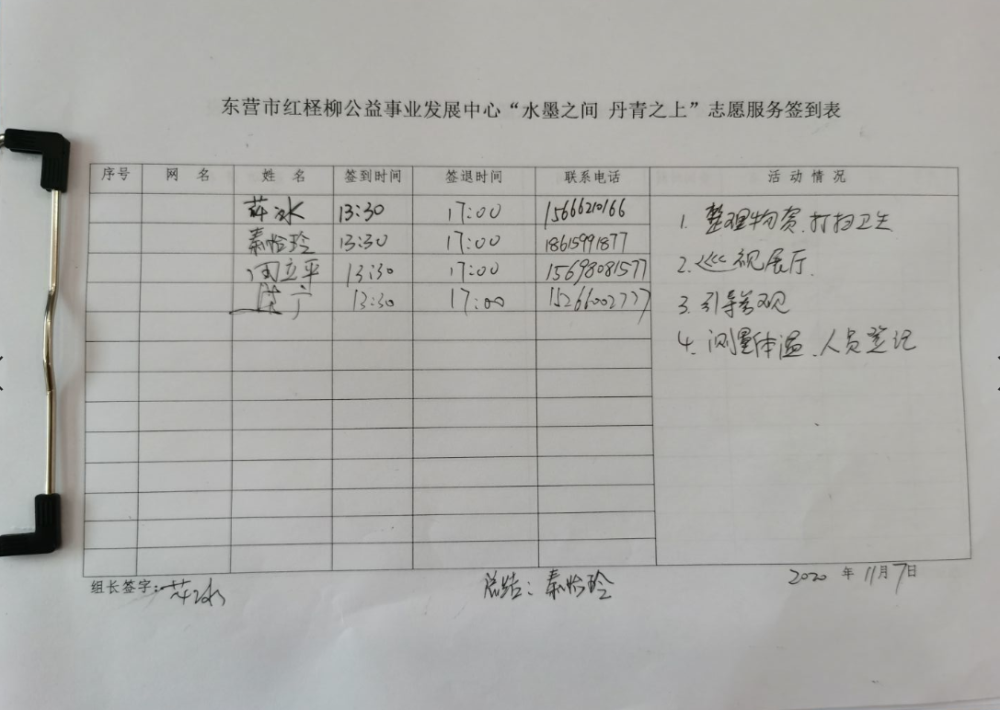 东营市红柽柳公益事业发展中心“水墨之间 丹青之上”志愿服务签到表
序号 网 名 姓 名 签到时间 签退时间 联系电话 活 动 情 况
冰 13:30 17:00 15666210166
秦怡玲 13:30 17:00 18615991877
周立平 13:30 17:00 15698081577
宁 13:30 17:00 15266002777
1. 整理物资、打扫卫生
2. 巡视展厅.
3. 引导参观
4. 测量体温、人员登记
组长签字: 冰
总结：秦怡玲
2020 年 11月7日